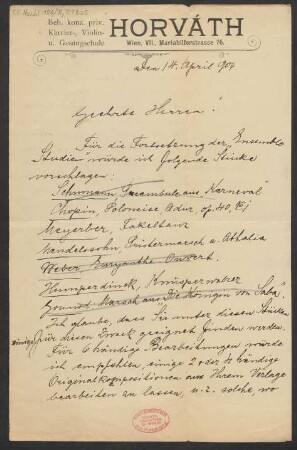 Beh. konz. priv.
Klavier-, Violin-
u. Gesangschule
HORVÁTH
Wien, VII., Mariahilferstrasse 76.
Wien 14. April 1909
Geehrte Herren!
Für die Fortsetzung der „Ensemble
Studien" würde ich folgende Stücke
vorschlagen:
Schumann Preambule aus Karneval"
Chopin, Polonaise Adur, op. 40, Nr 1
Meyerber, Fakeltanz
Mendelssohn, Priestermarsch a. Athalia
Weber Euryanthe Ouvert.
Humperdinck, Knusperwalzer
Gounod Marsch aus „Königin von Saba".
Ich glaube, dass Sie unter diesen Stücken
einige für diesen Zweck geeignet finden werden.
Für 6 händige Bearbeitungen würde
ich empfehlen, einige 2 oder 4 händige
Originalkompositionen aus Ihrem Verlage
bearbeiten zu lassen, u. z. solche, wo